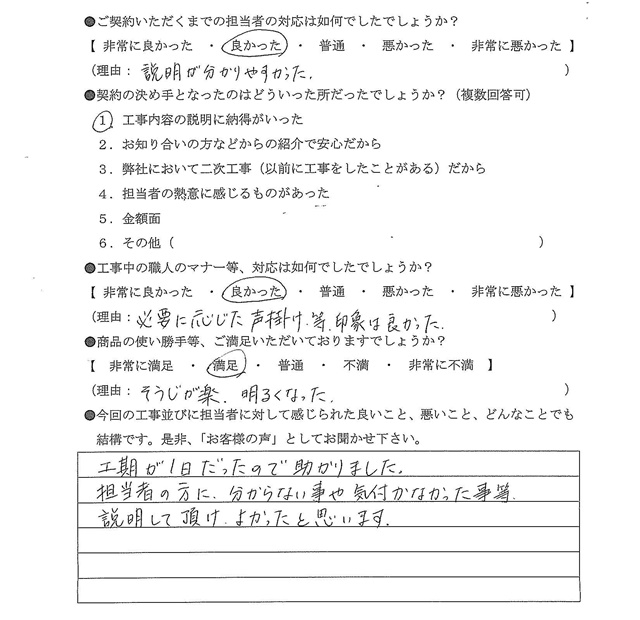 ●ご契約いただくまでの担当者の対応は如何でしたでしょうか？
【 非常に良かった ・ 良かった ・ 普通 ・ 悪かった ・ 非常に悪かった 】
（理由： 説明が分かりやすかった. ）
●契約の決め手となったのはどういった所だったでしょうか？（複数回答可）
1．工事内容の説明に納得がいった
2．お知り合いの方などからの紹介で安心だから
3．弊社において二次工事（以前に工事をしたことがある）だから
4．担当者の熱意に感じるものがあった
5．金額面
6．その他（ ）
●工事中の職人のマナー等、対応は如何でしたでしょうか？
【 非常に良かった ・ 良かった ・ 普通 ・ 悪かった ・ 非常に悪かった 】
（理由： 必要に応じた声掛け.等.印象は良かった. ）
●商品の使い勝手等、ご満足いただいておりますでしょうか？
【 非常に満足 ・ 満足 ・ 普通 ・ 不満 ・ 非常に不満 】
（理由： そうじが楽. 明るくなった. ）
●今回の工事並びに担当者に対して感じられた良いこと、悪いこと、どんなことでも
結構です。是非、「お客様の声」としてお聞かせ下さい。
工期が1日だったので助かりました.
担当者の方に.分からない事や気付かなかった事等.
説明して頂け.よかったと思います.